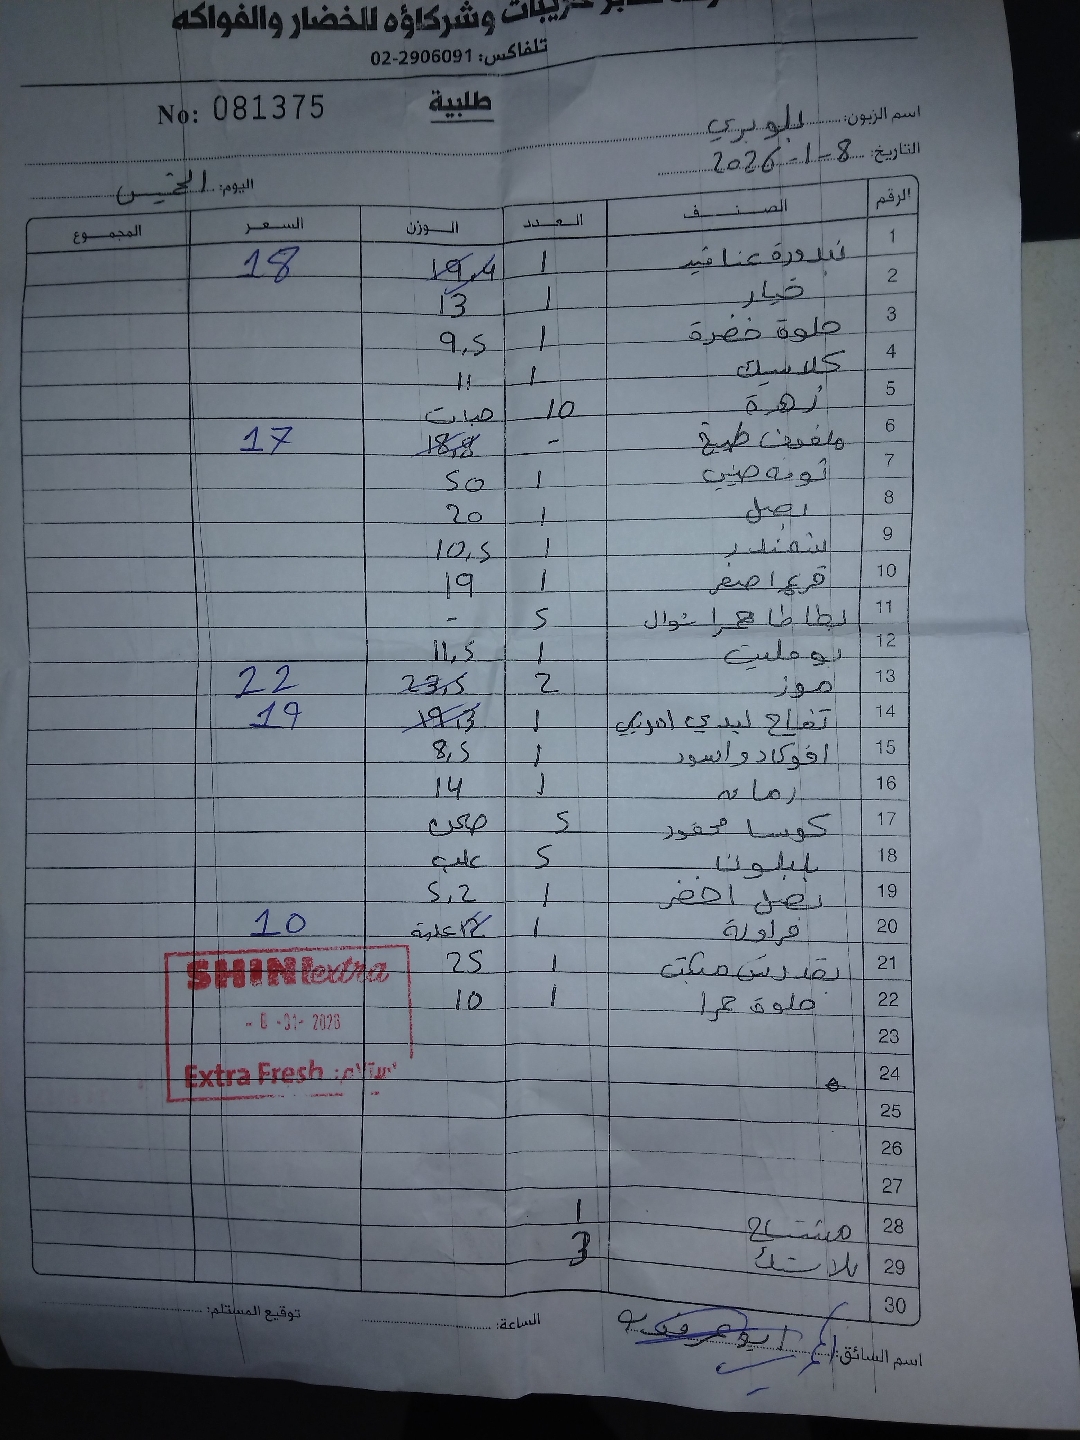 وشركاؤه للخضار والفواكه
تلفاكس: 02-2906091
No: 081375
طلبية
اسم الزبون:
التاريخ: 8-1-2026
اليوم: الخميس
الرقم الصنف العدد الوزن السعر المجموع
1 بندورة عناقيد 1 19,4 18
2 خيار 1 13
3 حلوة خضرة 1 9,5
4 كلاسيك 1 11
5 زهرة 10 حبات
6 ملفوف طبيخ - 18,8 17
7 ثومه صيني 1 50
8 بصل 1 20
9 شمندر 1 10,5
10 قرع اصفر 1 19
11 بطاطا حمرا نوال 5 -
12 بوملي 1 11,5
13 موز 2 23,5 22
14 تفاح ليدي امريكي 1 19,3 19
15 افوكادو اسود 1 8,5
16 رمان 1 14
17 كوسا محفور 5 صحن
18 5 علب
19 بصل اخضر 1 5,2
20 فراولة 1 12 علبة 10
21 بقدونس مكتب 1 25
22 حلوة حمرا 1 10
23
24
25
26
27
28 مشتاح 1
29 بلاستك 3
30
SHINI extra
8-01-2026
Extra Fresh
اسم السائق: ابو عرفه
الساعة:
توقيع المستلم: